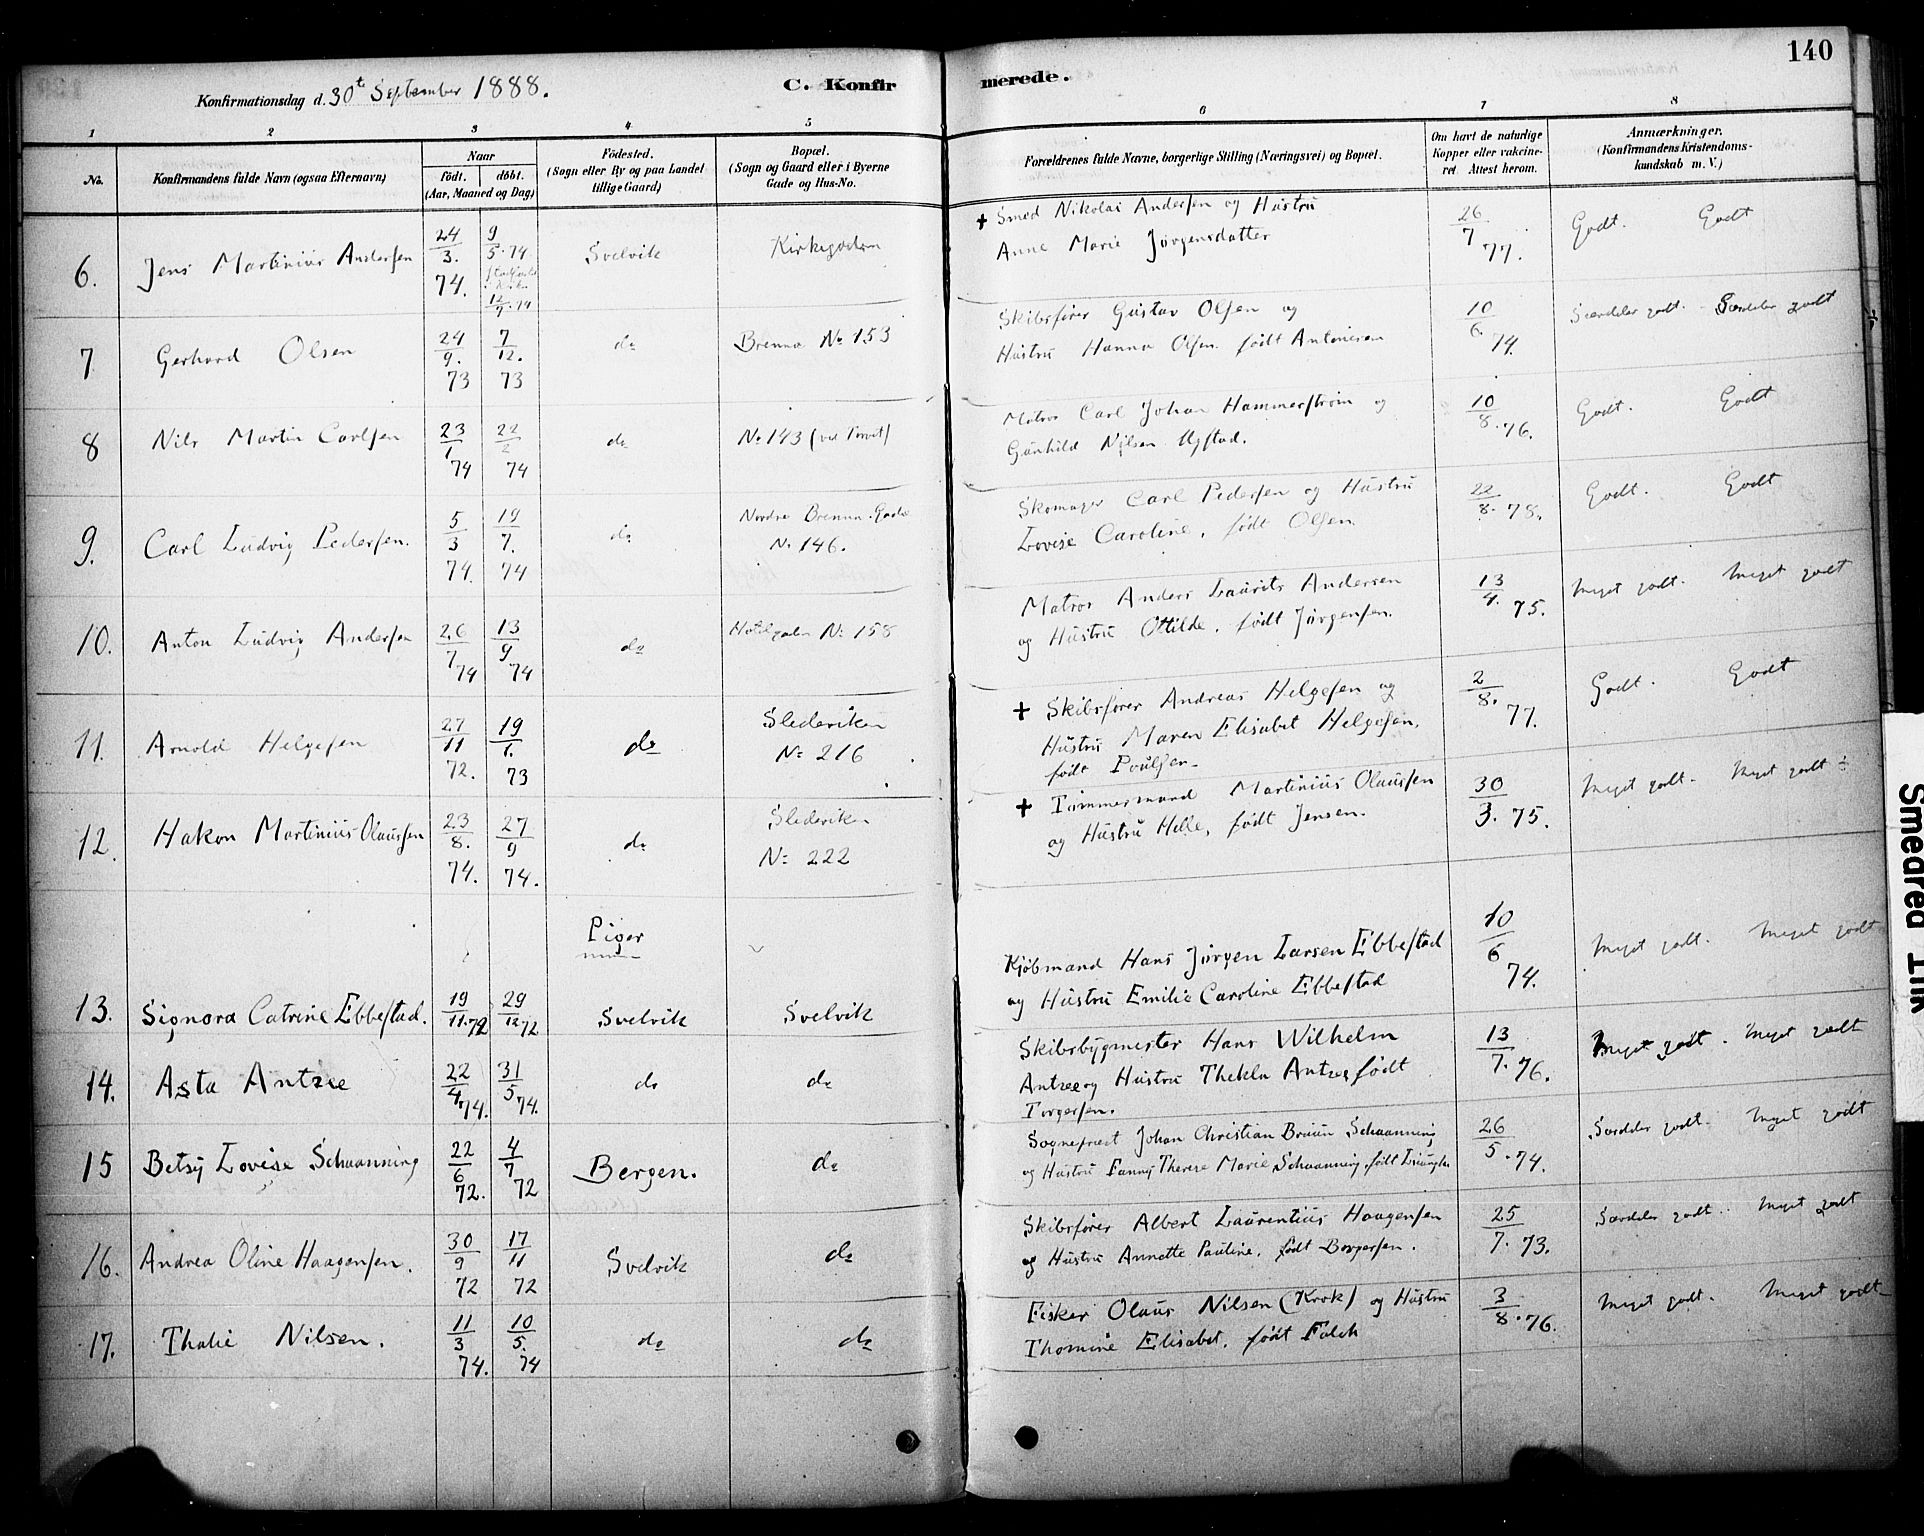 140
Konfirmationsdag d. 30t September 1888.
C. Konfirmerede.
1 2 3 4 5 6 7 8
No. Konfirmandens fulde Navn (ogsaa Efternavn)
Naar født. døbt. (Aar, Maaned og Dag)
Fødested. (Sogn eller By og paa Landet tillige Gaard)
Bopæl. (Sogn og Gaard eller i Byerne Gade og Hus-No.
Forældrenes fulde Navne, borgerlige Stilling (Næringsvei) og Bopæl.
Om havt de naturlige Kopper eller vakcineret. Attest herom.
Anmærkninger. (Konfirmandens Kristendomskundskab m. V.)
6. Jens Martinius Andersen 24/3. 74. 9/5.74 12/7.74 Svelvik Kirkegaden
+ Smed Nikolai Andersen og Hustru
Anne Marie Jørgensdatter 26/7 77. Godt. Godt
7 Gerhard Olsen 24/9. 73 7/12. 73 do Brenna No 153
Skibsfører Gustav Olsen og
Hustru Hanna Olsen født Antonisen 10/6. 74. Særdeles godt. Særdeles godt
8 Nils Martin Carlsen 23/1 74 22/2 74 do No 143 (ved Torvet)
Matros Carl Johan Hammerstrøm og
Gunhild Nilsen 10/8.76. Godt. Godt
9. Carl Ludvig Pedersen. 5/3 74. 19/7. 74 do Nordre Brenna-Gade
No 146.
Skomager Carl Pedersen og Hustru
Lovise Caroline, født Olsen. 22/8. 78. Godt. Godt
10. Anton Ludvig Andersen 26/7 74 13/9 74 do No 158
Matros Anders Laurits Andersen
og Hustru Ottilde, født Jørgensen. 13/4. 75. Meget godt. Meget godt
11. Arnold Helgesen 27/11 72. 19/1. 73 do Slederiken
No 216
+ Skibsfører Andreas Helgesen og
Hustru Maren Elisabet Helgesen,
født Poulsen 2/8. 77. Godt. Godt
12. Hakon Martinius Olaussen 23/8. 74. 27/9 74. do Slederiken
No 222
+ Tømmermand Martinius Olaussen
og Hustru Helle, født Jensen. 30/3. 75. Meget godt. Meget godt
Piger
13. Signora Catrine Ebbestad. 19/11.72 29/12 72 Svelvik Svelvik
Kjøbmand Hans Jørgen Larsen Ebbestad
og Hustru Emilie Caroline Ebbestad 10/6 74. Meget godt. Meget godt
14. Asta Antzee 22/4 74. 31/5 74. do do
Skibsbygmester Hans Wilhelm
Antzee og Hustru Thekla Antzee født
Torgersen. 13/7. 76. Meget godt. Meget godt
15 Betsy Lovise Schaanning 22/6 72. 4/7 72 Bergen. do
Sogneprest Johan Christian Bruun Schaanning
og Hustru Fanny Therese Marie Schaanning, født 26/5.74. Særdeles godt. Meget godt
16. Andrea Oline Haagensen. 30/9 72 17/11 72 Svelvik do
Skibsfører Albert Laurentius Haagensen
og Hustru Annette Pauline, født Borgersen. 25/7. 73. Særdeles godt. Meget godt
17. Thalie Nilsen. 11/3 74. 10/5. 74 do do
Fisker Olaus Nilsen (Krok) og Hustru
Thomine Elisabet, født Falch 3/8.76. Meget godt. Meget godt
Smeared Ink